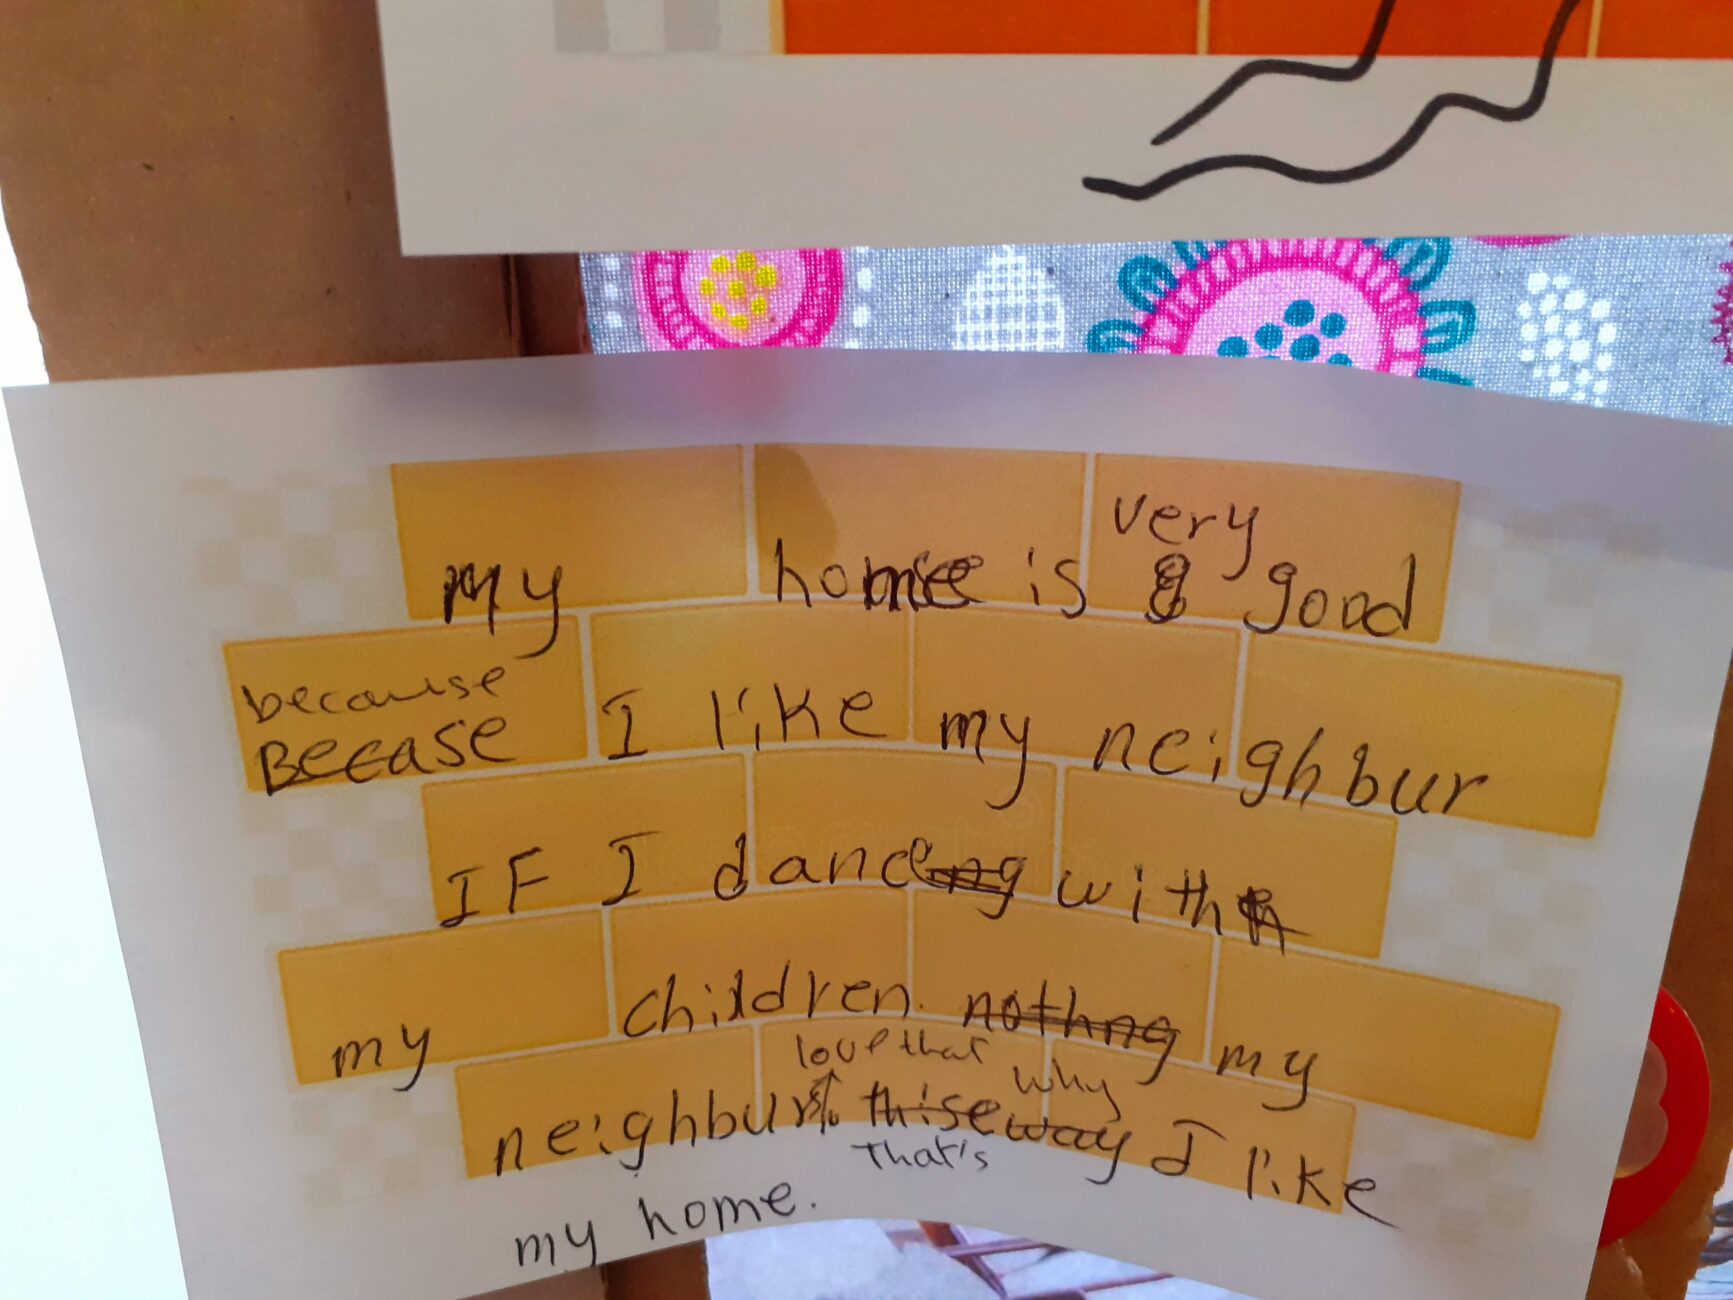 very
my home is good
because
BECASE I like my neighbur
IF I danceng with
my children. nothng my
love that why
neighburs thise way I like
That's
my home.